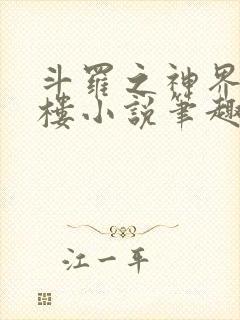 斗羅之神界
樓小說筆趣
江一平